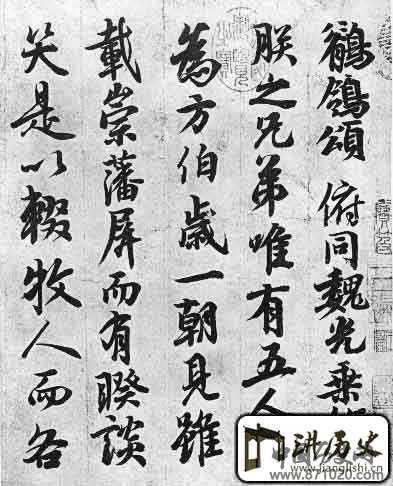 鶺鴒頌 俯同魏光乘
朕之兄弟唯有五人
為方伯歲一朝見雖
載崇藩屏而有睽談
笑是以輟牧人而各
讲历史
www.jianglishi.cn
www.871020.com